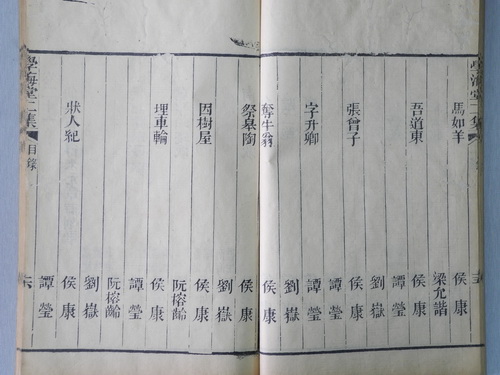 學海堂二集
馬如羊 侯康
梁允諧
吾道東 侯康
譚瑩
劉嶽
張曾子 侯康
譚瑩
字升卿 譚瑩
劉嶽
奪牛翁 侯康
祭皋陶 侯康
劉嶽
因樹屋 侯康
阮榕齡
埋車輪 侯康
譚瑩
阮榕齡
劉嶽
狀人紀 侯康
譚瑩
學海堂二集 目錄